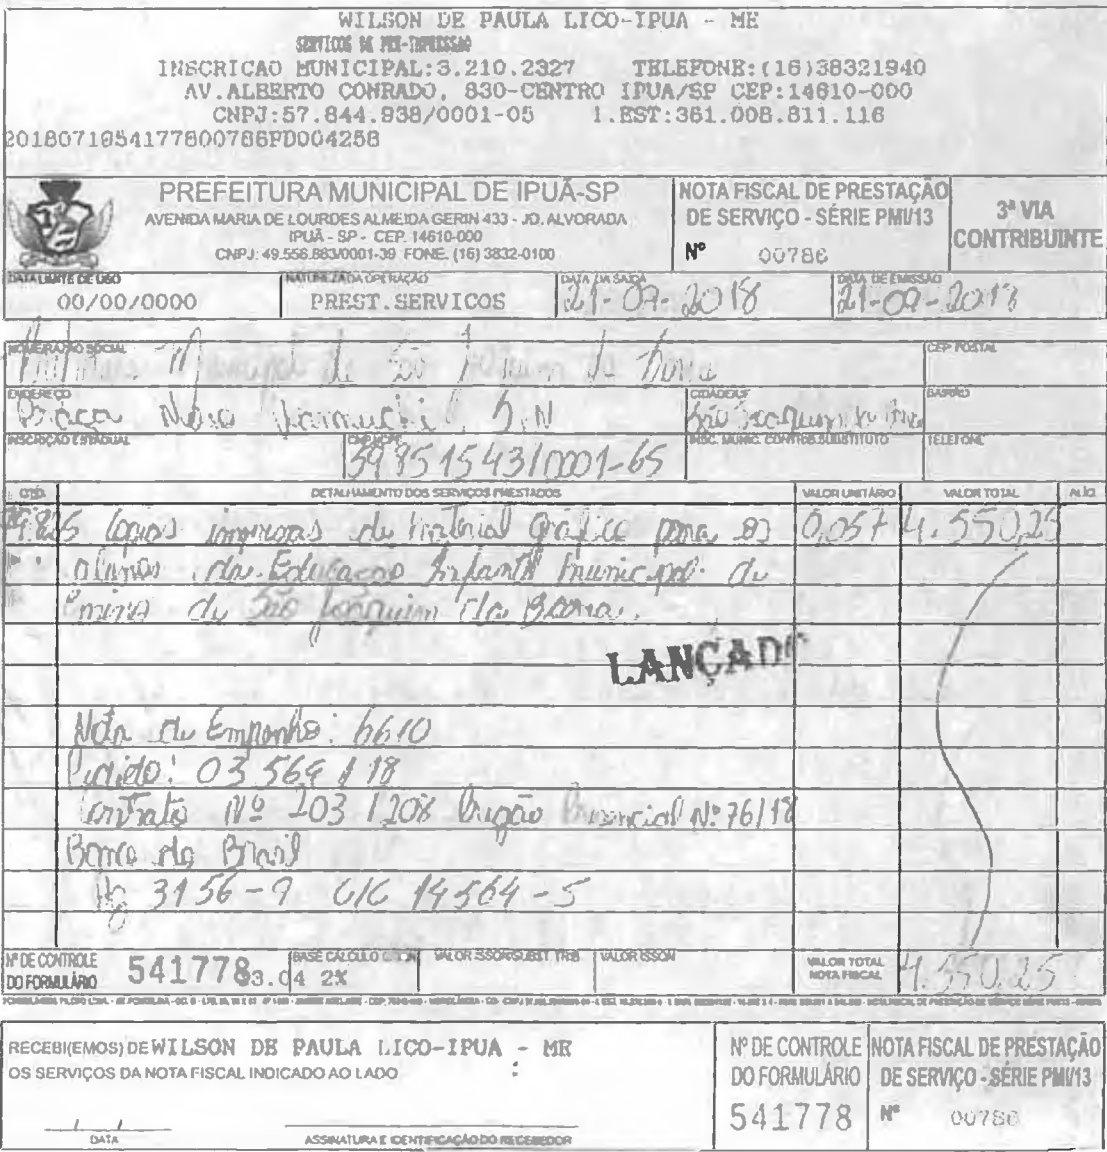 WILSON DE PAULA LICO-IPUA - ME
SERVICOS DE PRE-IMPRESSAO
INSCRICAO MUNICIPAL:3.210.2327 TELEFONE:(16)38321940
AV.ALBERTO CONRADO, 830-CENTRO IPUA/SP CEP:14610-000
CNPJ:57.844.938/0001-05 I.EST:361.008.811.116
2018071954177800786PD004258
PREFEITURA MUNICIPAL DE IPUÃ-SP
AVENIDA MARIA DE LOURDES ALMEIDA GERIN 433 - JD. ALVORADA
IPUÃ - SP - CEP. 14610-000
CNPJ: 49.556.883/0001-39 FONE. (16) 3832-0100
NOTA FISCAL DE PRESTAÇÃO
DE SERVIÇO - SÉRIE PMI/13
Nº 00786
3ª VIA
CONTRIBUINTE
DATA LIMITE DE USO
00/00/0000
NATUREZA DA OPERAÇÃO
PREST.SERVICOS
DATA DA SAÍDA
21-09-2018
DATA DE EMISSÃO
21-09-2018
NOME/RAZÃO SOCIAL
Municipal de São Joaquim da Barra
CEP POSTAL
ENDEREÇO
Praça S/N
CIDADE/UF
São Joaquim da Barra
BAIRRO
INSCRIÇÃO ESTADUAL
CNPJ/CPF
59851543/0001-65
INSC. MUNIC. CONTRIB. SUBSTITUTO
TELEFONE
QTD.
DETALHAMENTO DOS SERVIÇOS PRESTADOS
VALOR UNITÁRIO
VALOR TOTAL
ALÍQ.
copias impressas de Material Gráfico para os 0,057 4.550,25
alunos da Educação Infantil Municipal de
Ensino de São Joaquim da Barra.
LANÇADO
Nota de Empenho: 6610
Pedido: 03569/18
Contrato Nº 203/208 Pregão Presencial Nº 76/18
Banco do Brasil
Ag 3156-9 C/C 14564-5
Nº DE CONTROLE
DO FORMULÁRIO
541778
3.04 2%
BASE CÁLCULO ISSQN
VALOR ISSQN/SUBST. TRIB.
VALOR ISSQN
VALOR TOTAL
NOTA FISCAL
4.550,25
RECEBI(EMOS) DE WILSON DE PAULA LICO-IPUA - ME
OS SERVIÇOS DA NOTA FISCAL INDICADO AO LADO
DATA
ASSINATURA E IDENTIFICAÇÃO DO RECEBEDOR
Nº DE CONTROLE
DO FORMULÁRIO
541778
NOTA FISCAL DE PRESTAÇÃO
DE SERVIÇO - SÉRIE PMI/13
Nº 00786